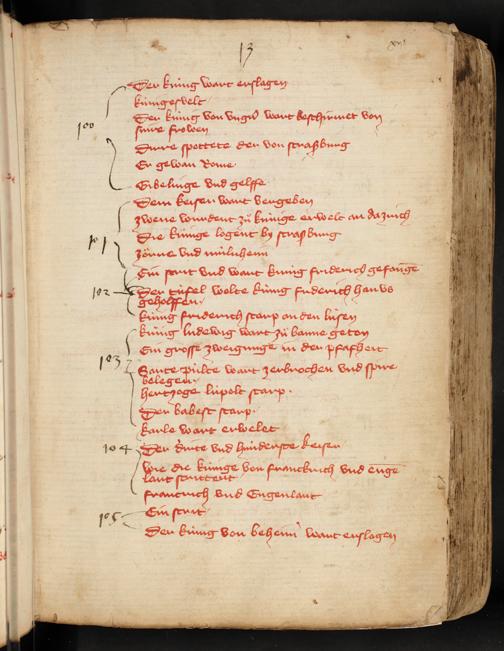 13
xvi
Der kúnig wart erslagen
kúnigesvelt
100
Der kúnig von vngern wart beschirmet von
sinre frowen
Dirre spottete der von straßburg
Er gewan Rome
Gibelinge vnd gelffe
Dem keiser wart vergeben
zwene wurdent zú kúnige erwelt an
101
Die kúnige logent by straßburg
vnd
Ein strit vnd wart kúnig friderich gefangen
102
Der túfel wolte kúng friderich han vs
geholffen
kúnig friderich starp an den lúsen
kúnig ludewig wart zú banne geton
Ein grosse zweigunge in der pfafheit
103
Sante wart zerbrochen vnd spire
belegen
hertzoge lúpolt starp
Der babest starp
karle wart erwelet
104
Der dirte vnd hinderste keiser
wie die kúnige von franckrich vnd enge
lant strittent
franckrich vnd Engenlant
105
Ein strit
Der kúnig von behem wart erslagen